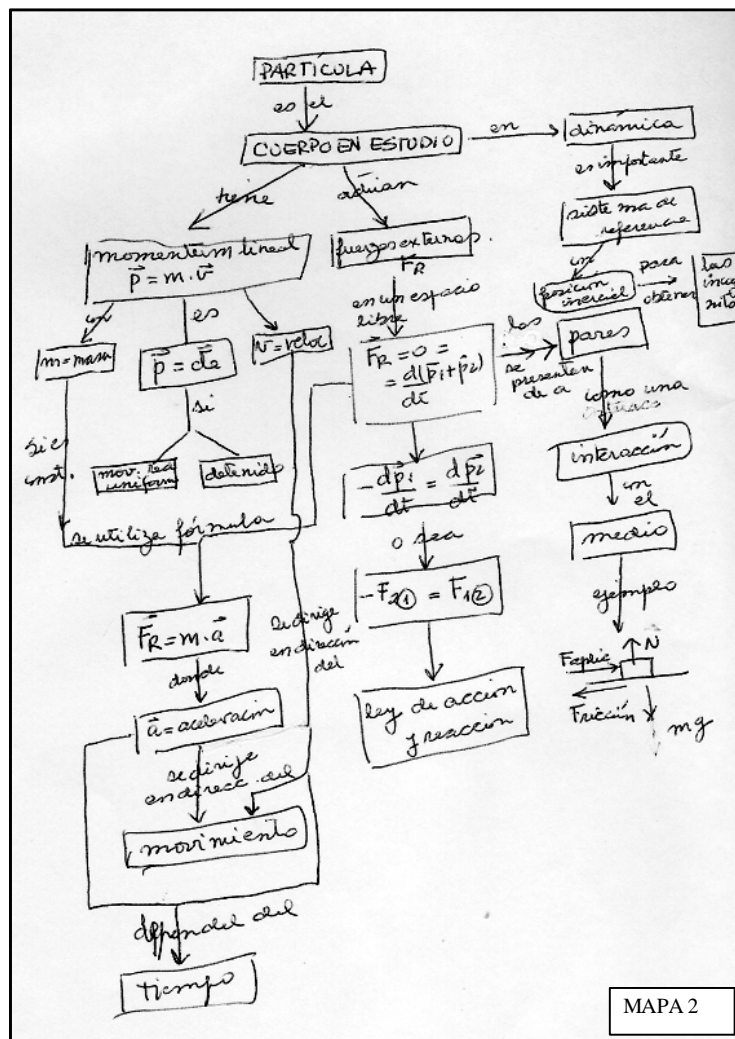 PARTÍCULA
es el
CUERPO EN ESTUDIO
en
dinámica
es importante
sistema de
referencia
un
posición
inercial
para
obtener
las
tiene
momentum lineal
p⃗ = m·v⃗
un
m = masa
es
p⃗ = cte
v = veloc
si
mov. rec
uniform
detenido
si es
const.
se utiliza fórmula
F⃗R = m·a⃗
donde
a⃗ = aceleración
se dirige
en direcc. del
movimiento
se dirige
en dirección
del
depende del
tiempo
actúan
fuerzas externas.
F⃗R
en un espacio
libre
F⃗R = 0 =
= d(p⃗1 + p⃗2)
dt
-dp⃗1 = dp⃗2
dt dt
o sea
-F2① = F1②
ley de acción
y reacción
las
se
presentan
de a
pares
como una
interacción
en
el
medio
ejemplo
N⃗
Faplic
Fricción
mg
MAPA 2